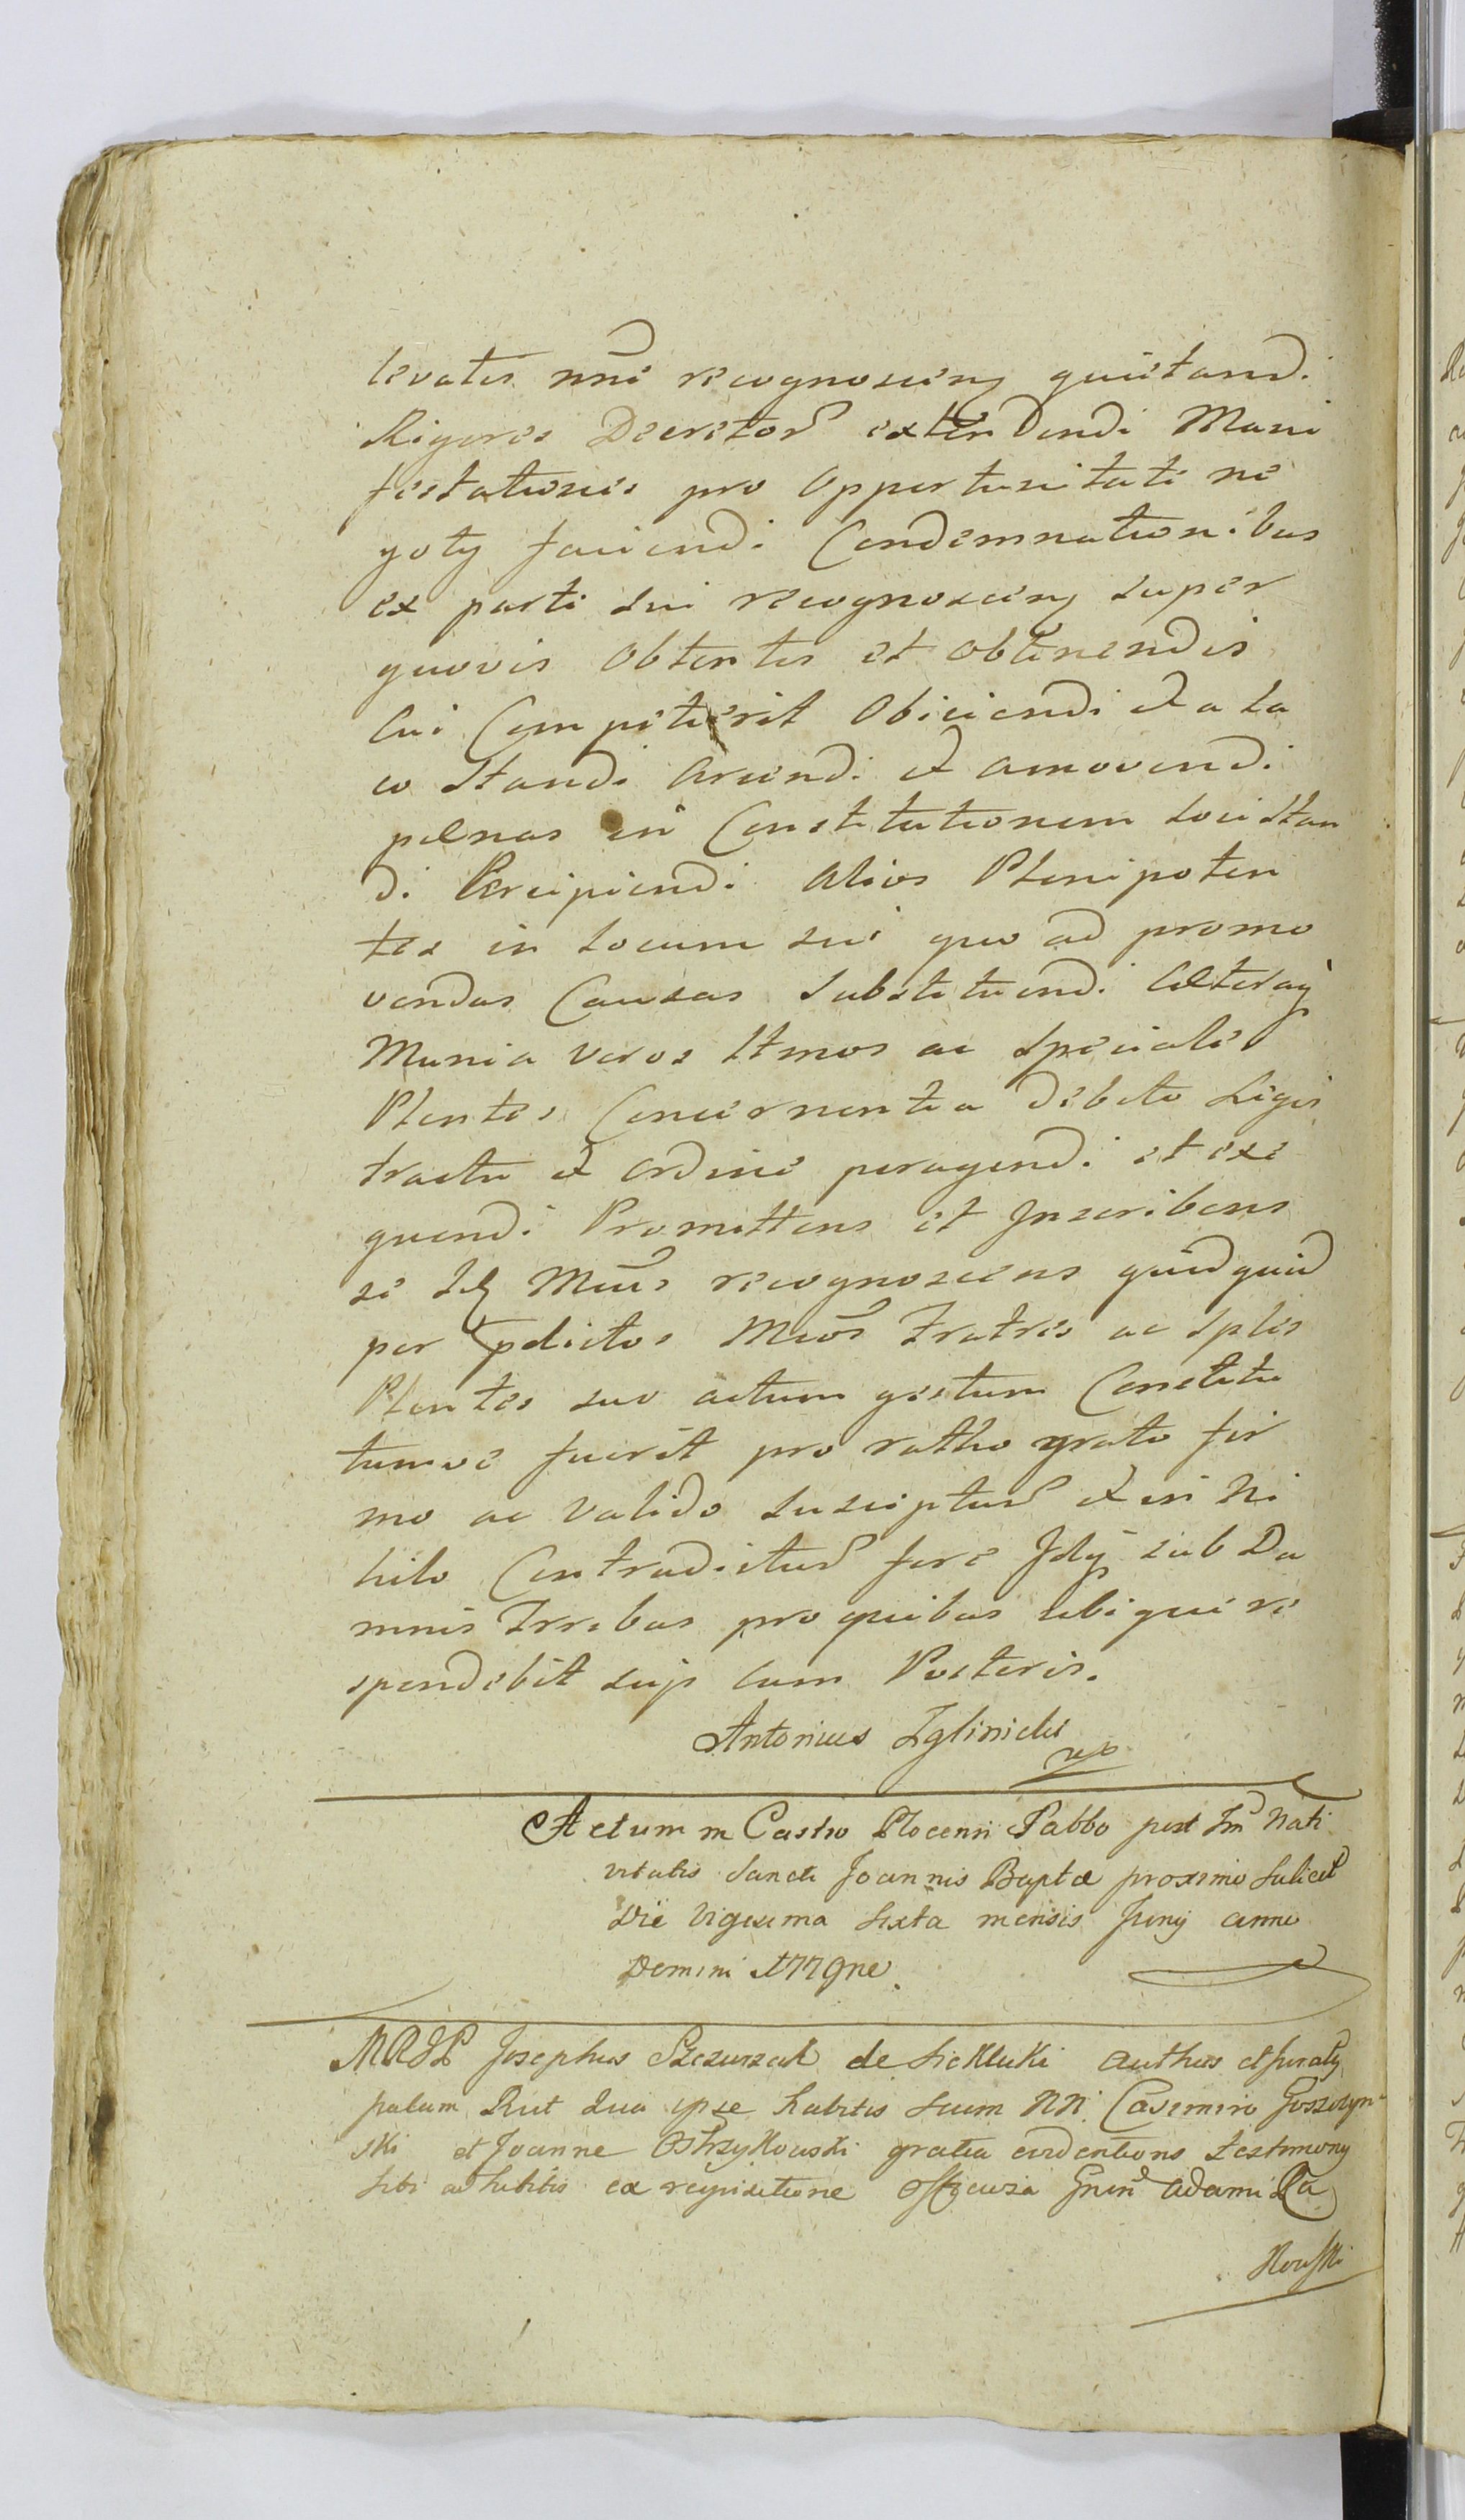 levatis nnê recognoscenȝ quietandi
Rigores Decretor̄ extendendi Mani
festationes pro Opportunitate ne
goty faciendi Condemnationibus
ex parte sui recognoscenȝ super
quovis Obtentis et obtinendis
Cui Competierit Obiiciendi et a Lo
co Standi Arcendi et amovendi
pænas in Constitutionem Loci Stan
di Percipiendi Alios Plenipoten
tes in Locum sui quo ad promo
vendas Causas Substituendi Cæteraq̀
Munia veros Ltmos ac Speciales
Plentes Concernentia debito Legis
tractu et Ordine peragendi et exe
quendi Promittens et Inscribens
se Idȝ Mcus recognoscens quidquid
per pdictos Mcos Fratres ac Sples
Plentes suo actum gestum Constitu
tumve fuerit pro ratho grato fir
mo ac Valido Suscipturū et in Ni
hilo Contradicturū fore Idq̀ sub Da
mnis Trribus pro quibus ubique re
spondebit Suis Cum Posteris.
Antonius Zglinicki
mp
Actum in Castro Plocensi Sabbo post Fm̄ Nati
vitatis Sancti Joannis Baptæ proximo Scilicet
Die Vigesima Sexta mensis Junÿ anno
Domini 1779no
MRGL Josephus Szczurzak de Siekluki authus et juratȝ
palam Rlit Quia ipse habitis secum NN Casimiro Goszczyn
ski et Joanne Ostrzykowski gratia evidentioris Testimony
sibi adhibitis ex requisitione Officiosa Gnrsi Adami Ra
kowski